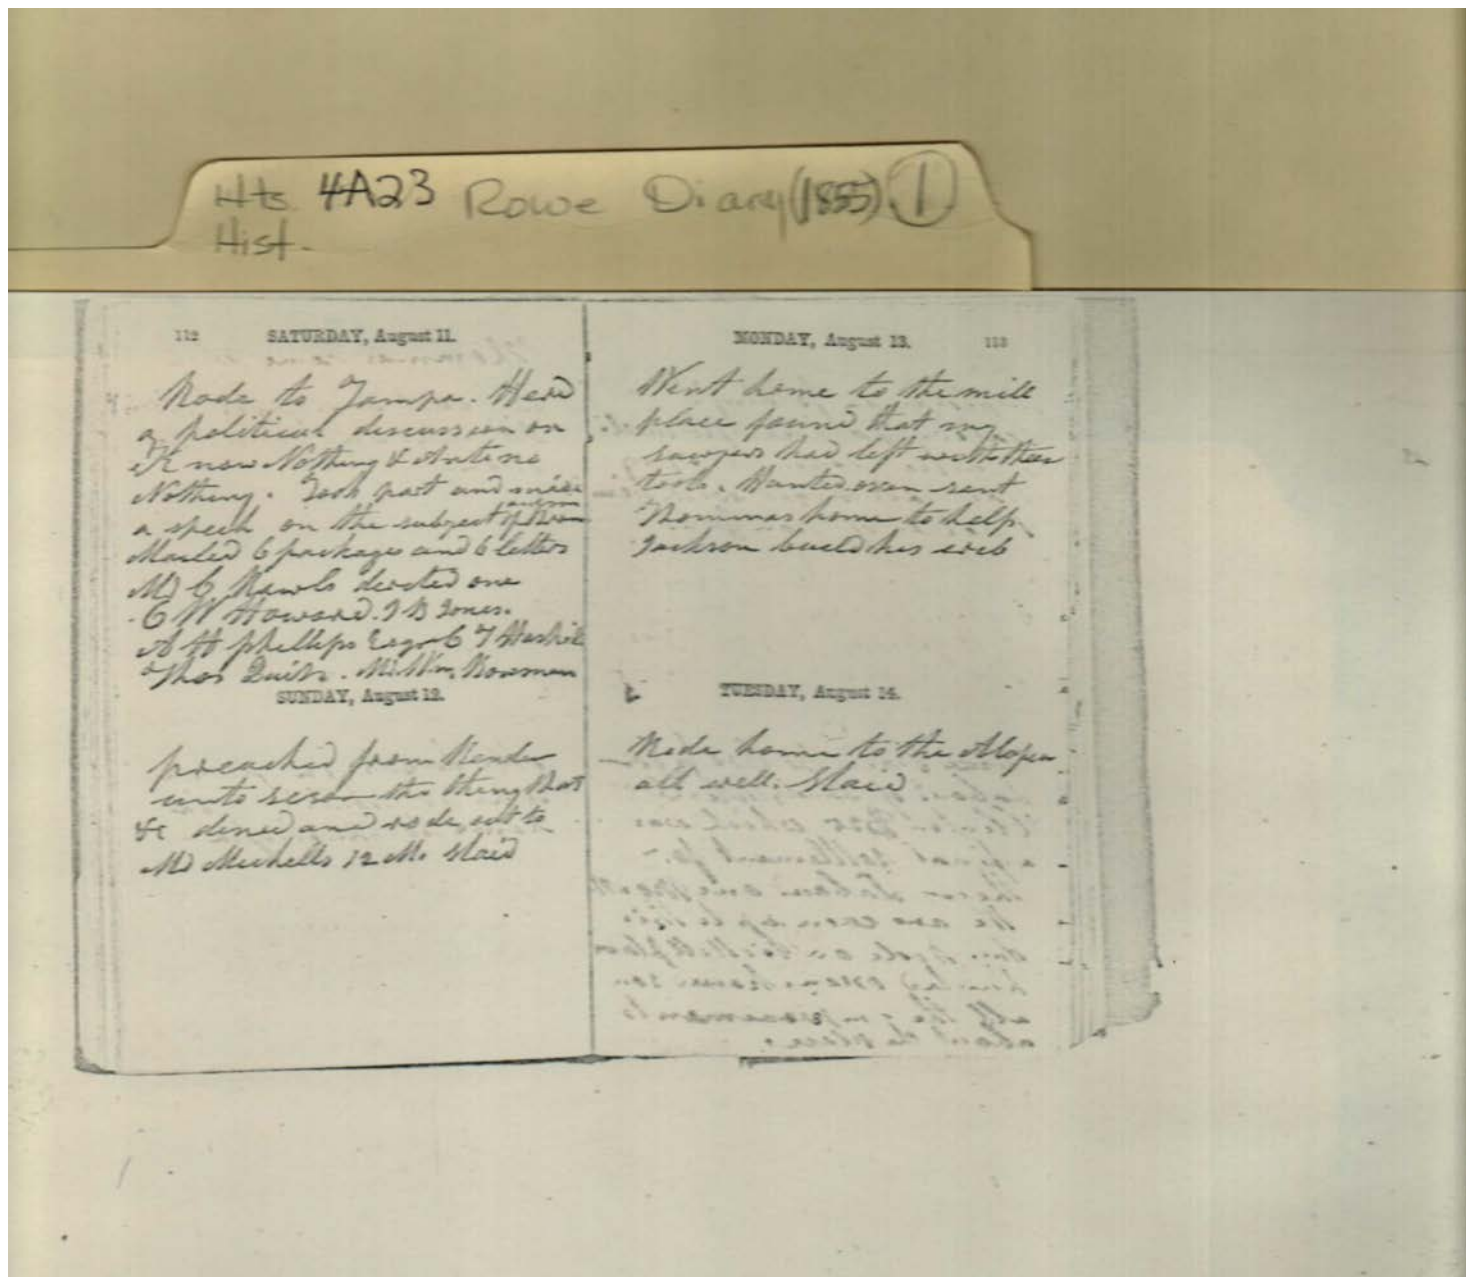 Hts 4A23 Rowe Diary (1855) 1
Hist.
112 SATURDAY, August 11.
Rode to Tampa. Herd
a political discussion on
Know Nothing & Antino
Nothing. Took part and made
a speech on the subject
Mailed 6 packages and 6 letters
directed one
C W Howard. J B Jones.
A H phillips Esqr C T
Thos
SUNDAY, August 12.
preached from Render
unto the thing that
&c dined and rode out to
Mr Michells 12 M. Staid
MONDAY, August 13. 113
Went home to the mill
place found that my
sawyers had left with their
tools. Hunted oxen sent
home to help
Jackson build his crib
TUESDAY, August 14.
Rode home to the
all well. Staid